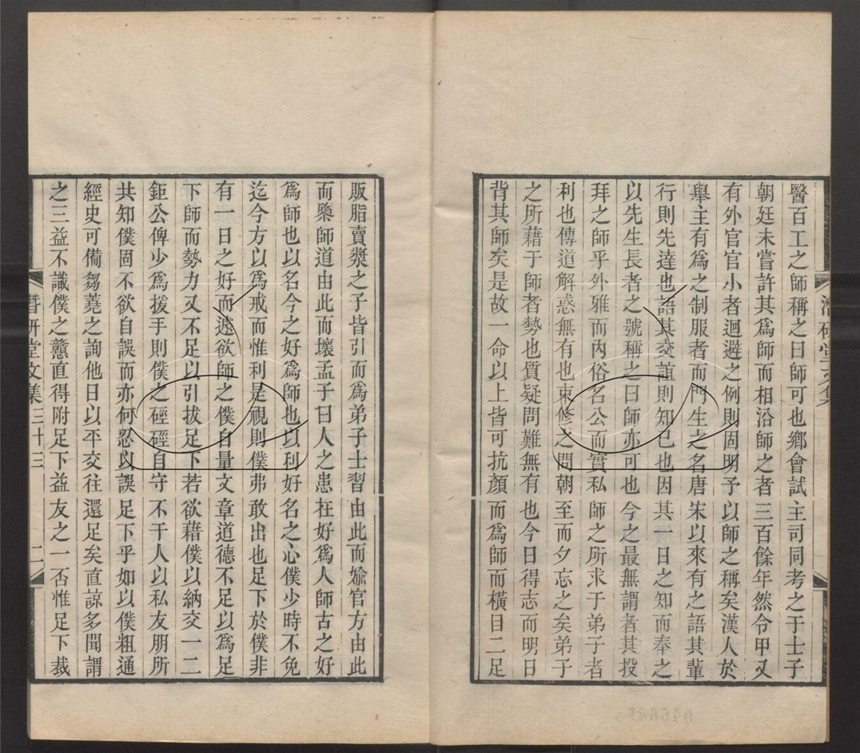 醫百工之師稱之曰師可也鄉會試主司同考之于士子
朝廷未嘗許其爲師而相沿師之者三百餘年然令甲又
有外官官小者迴避之例則固明予以師之稱矣漢人於
舉主有爲之制服者而門生之名唐宋以來有之語其輩
行則先達也語其交誼則知己也因其一日之知而奉之
以先生長者之號稱之曰師亦可也今之最無謂者其投
拜之師乎外雅而內俗名公而實私師之所求于弟子者
利也傳道解惑無有也束修之問朝至而夕忘之矣弟子
之所藉于師者勢也質疑問難無有也今日得志而明日
背其師矣是故一命以上皆可抗顏而爲師而橫目二足
販脂賣漿之子皆引而爲弟子士習由此而媮官方由此
而隳師道由此而壞孟子曰人之患在好爲人師古之好
爲師也以名今之好爲師也以利好名之心僕少時不免
迄今方以爲戒而惟利是視則僕弗敢出也足下於僕非
有一日之好而遽欲師之僕自量文章道德不足以爲足
下師而勢力又不足以引拔足下若欲藉僕以納交一二
鉅公俾少爲援手則僕之硜硜自守不干人以私友朋所
共知僕固不欲自誤而亦何忍以誤足下乎如以僕粗通
經史可備芻蕘之詢他日以平交往還足矣直諒多聞謂
之三益不識僕之戇直得附足下益友之一否惟足下裁
潛研堂文集 三十三 二